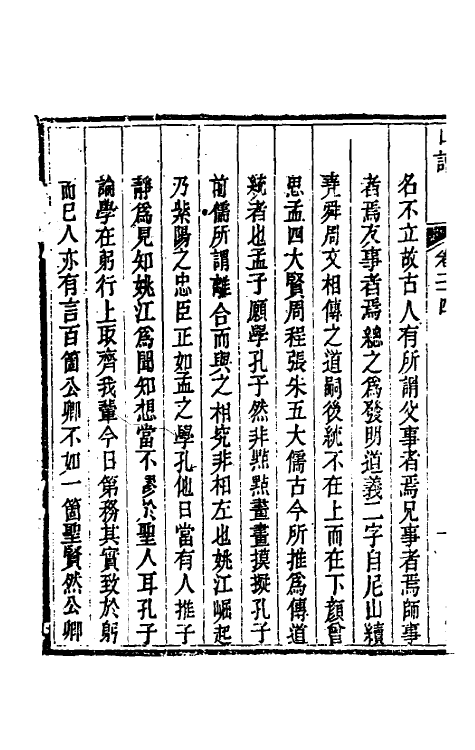 卷二四
名不立故古人有所謂父事者焉兄事者焉師事
者焉友事者焉總之為發明道義二字自尼山續
堯舜周文相傳之道嗣後統不在上而在下顏曾
思孟四大賢周程張朱五大儒古今所推為傳道
統者也孟子願學孔子然非點點畫畫摸擬孔子
前儒所謂離合而與之相究非相左也姚江崛起
乃紫陽之忠臣正如孟之學孔他日當有人推子
靜為見知姚江為聞知想當不謬於聖人耳孔子
論學在躬行上取齊我輩今日第務其實致於躬
而已人亦有言百箇公卿不如一箇聖賢然公卿